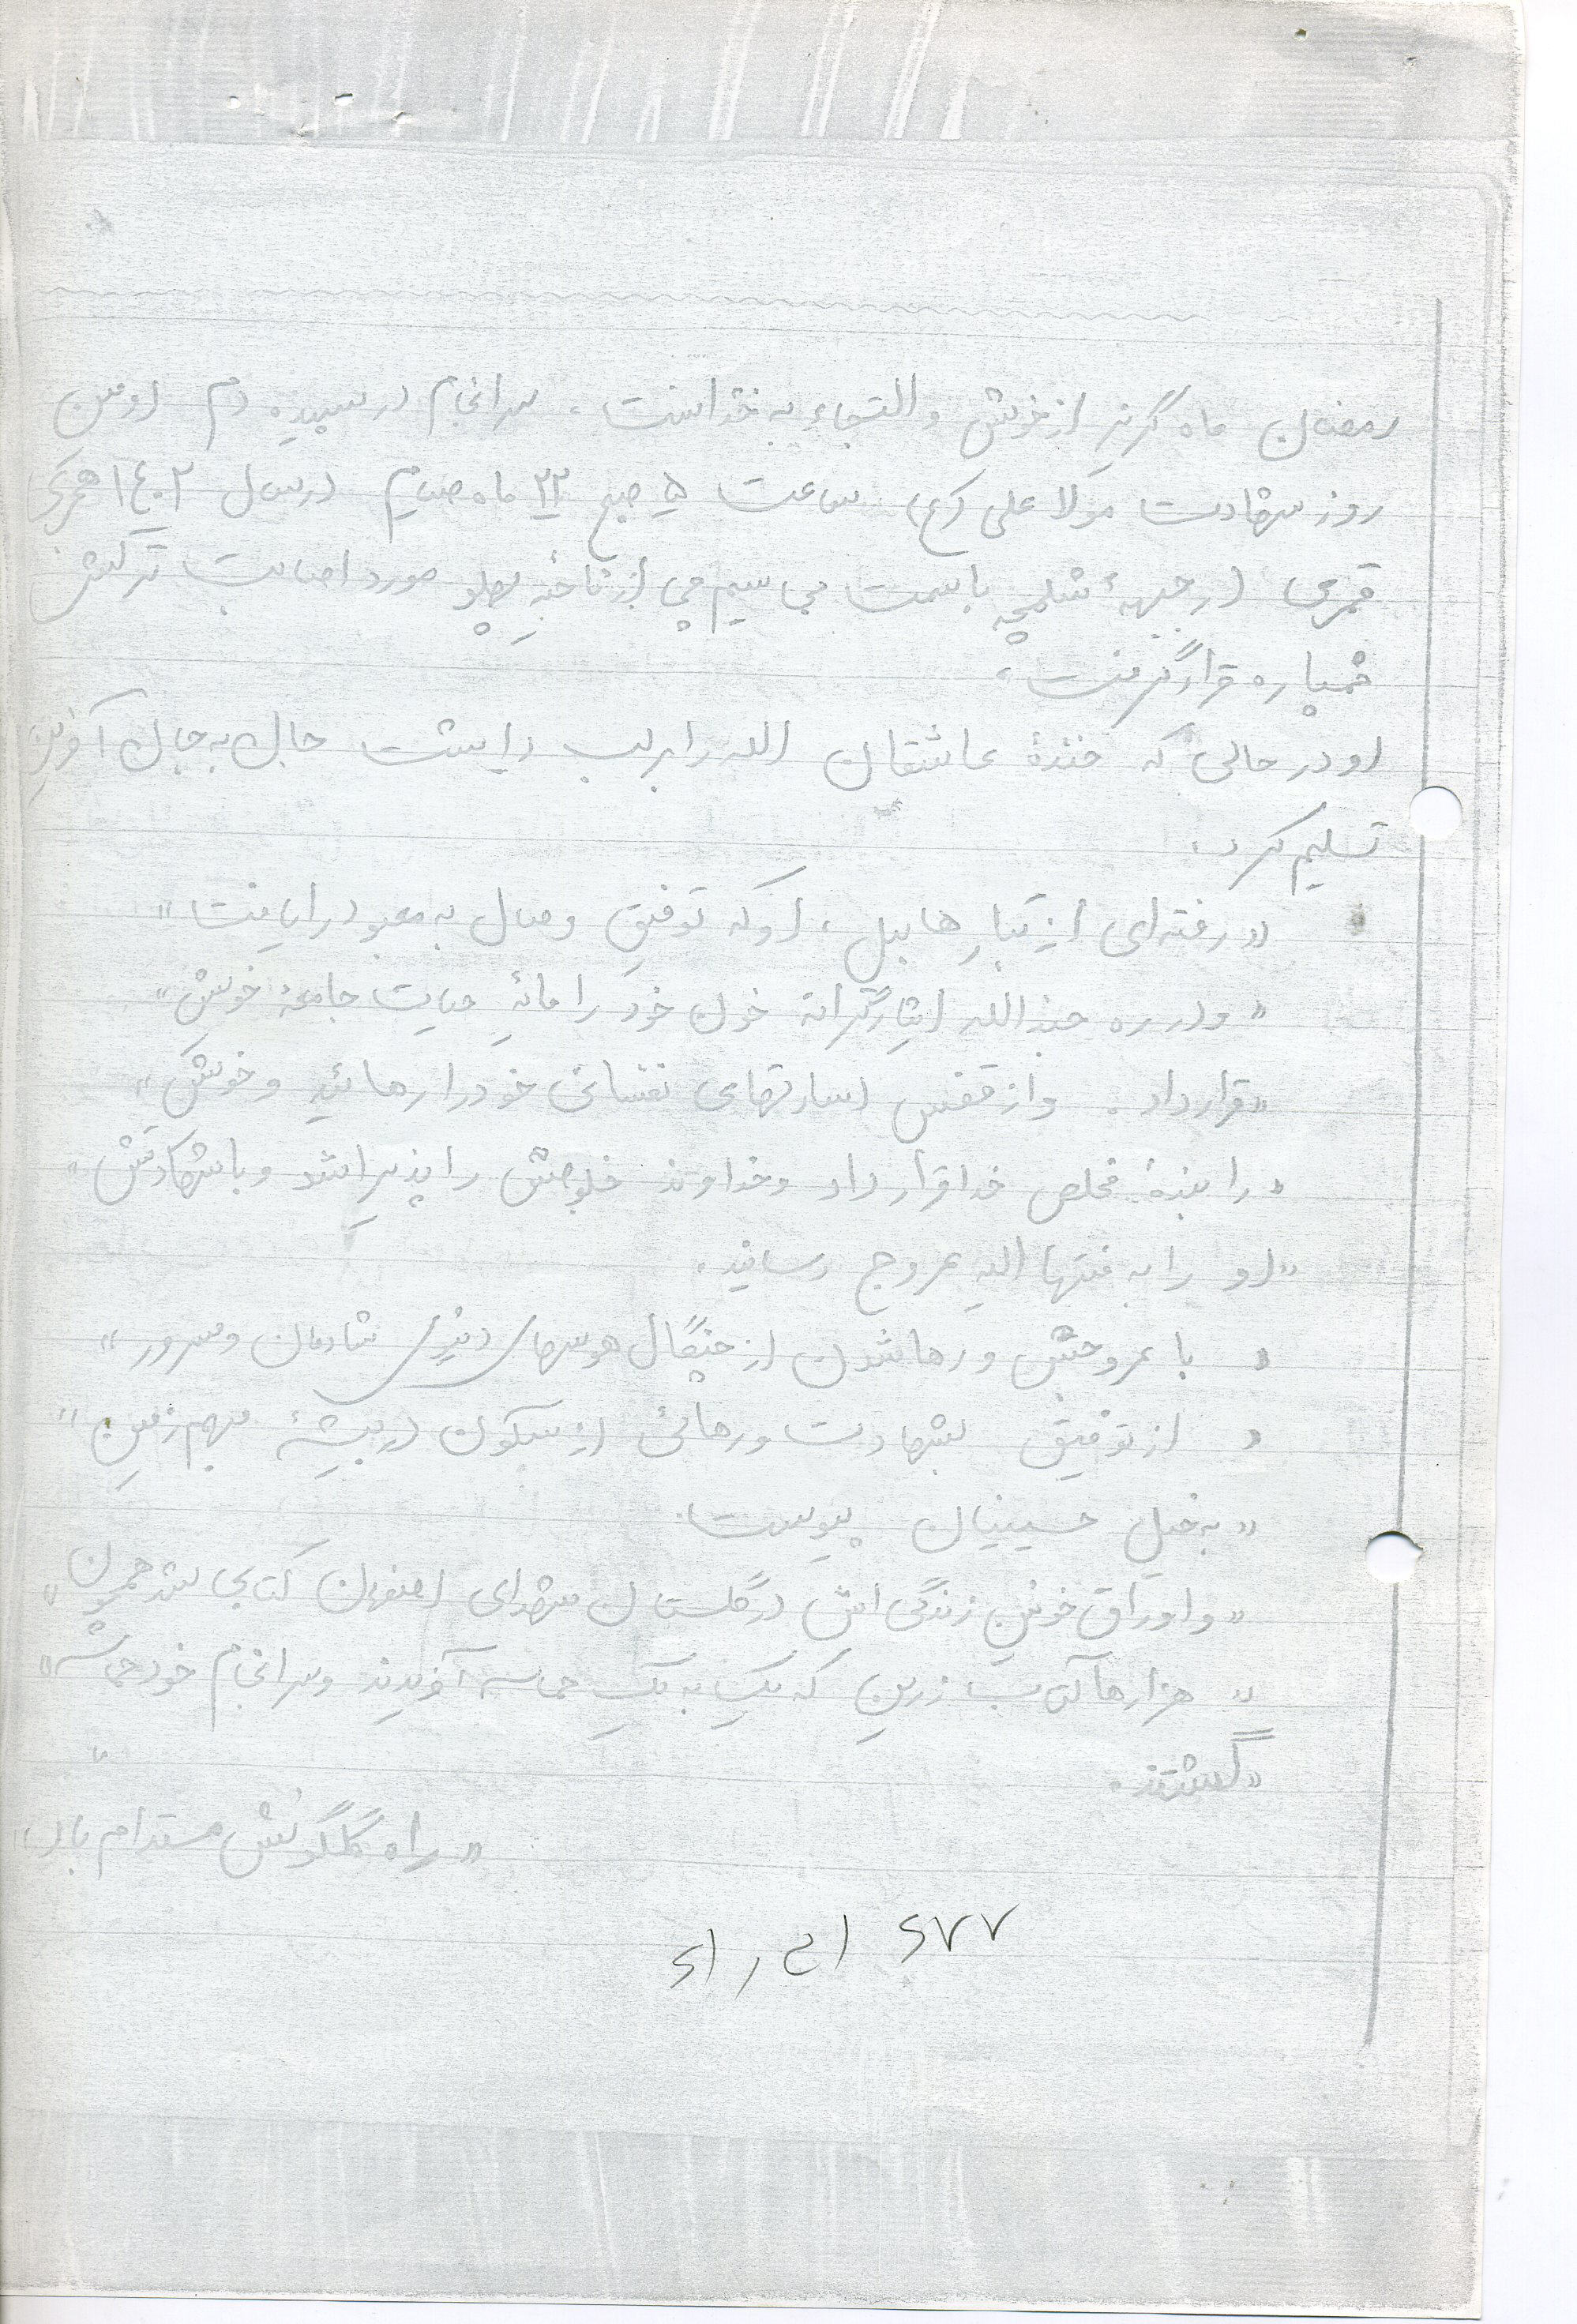 رمضان ماه گریز از خویش و التجاء به خداست، سرانجام در سپیده دم دومین
روز شهادت مولا علی (ع) ساعت ۵ صبح ۲۲ ماه صیام در سال ۱۴۰۲ هجری
قمری در جبههٔ شلمچه با سمت بی سیم چی از ناحیه پهلو مورد اصابت ترکش
خمپاره قرار گرفت،
او در حالی که خندهٔ عاشقان الله را بر لب داشت جان به جان آفرین
تسلیم کرد.
«رفته‌ای از تبار هابیل، او که توفیق وصال به معبود را یافت»
«و در ره حزب الله ایثارگرانه خون خود را مایهٔ حیات جامعهٔ خویش»
«قرار داد. و از قفس اسارتهای نفسانی خود را رهانید و خویش»
«را بندهٔ مخلص خدا قرار داد و خداوند خلوصش را پذیرا شد و با شهادتش»
«او را به منتها الیه عروج رسانید.
« با عروجش و رها شدن از چنگال هوسهای دنیوی شادمان و مسرور»
« از توفیق شهادت و رهائی از سکون در بیشهٔ مبهم زمین»
«به خیل حسینیان پیوست.
«و اوراق خونین زندگی اش در گلستان شهدای اصفهان کتابی شد همچون»
« هزارها کتاب زرین که یک به یک حماسه آفریدند و سرانجام خود حماسه»
«گشتند.
«راه گلگونش مستدام باد»
۲۷۷ ۱ ح ر ۱۲